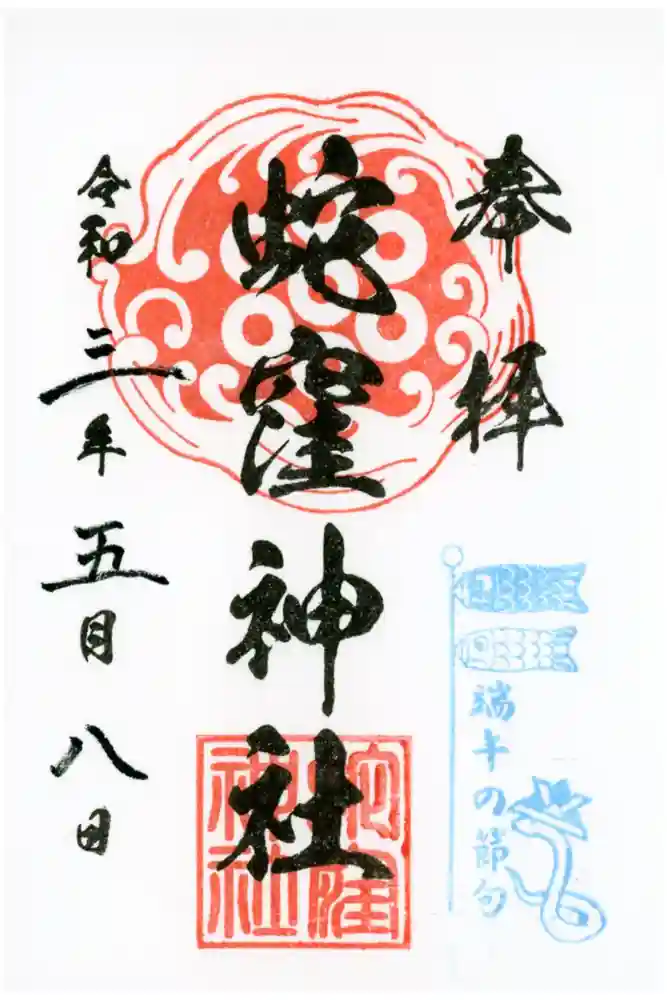 奉拝
蛇窪神社
蛇窪神社
令和三年五月八日
端午の節句